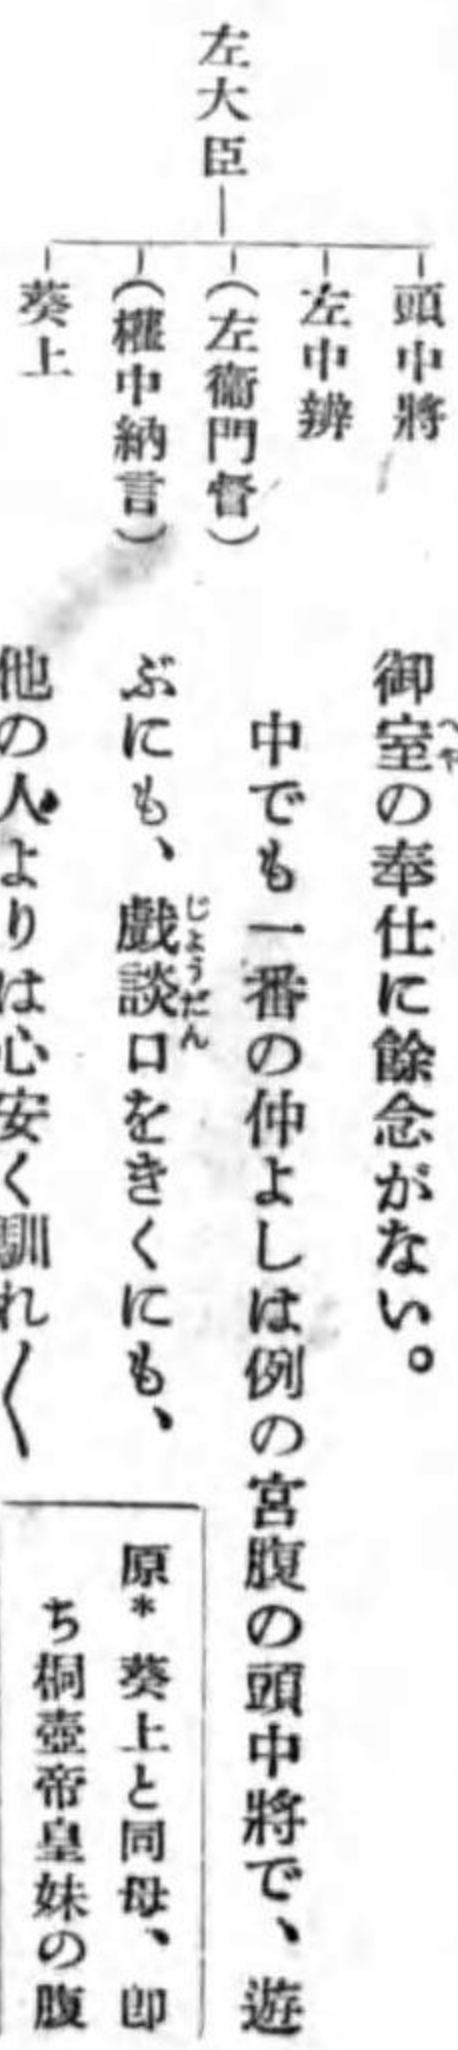 左大臣
頭中將
左中辨
(左衞門督)
(權中納言)
葵上
御室の奉仕に餘念がない。
へや
中でも一番の仲よしは例の宮腹の頭中將で、遊
ぶにも、戲談口をきくにも、
じようだん
他の人よりは心安く馴れ〱
原* 葵上と同母、卽
ち桐壺帝皇妹の腹